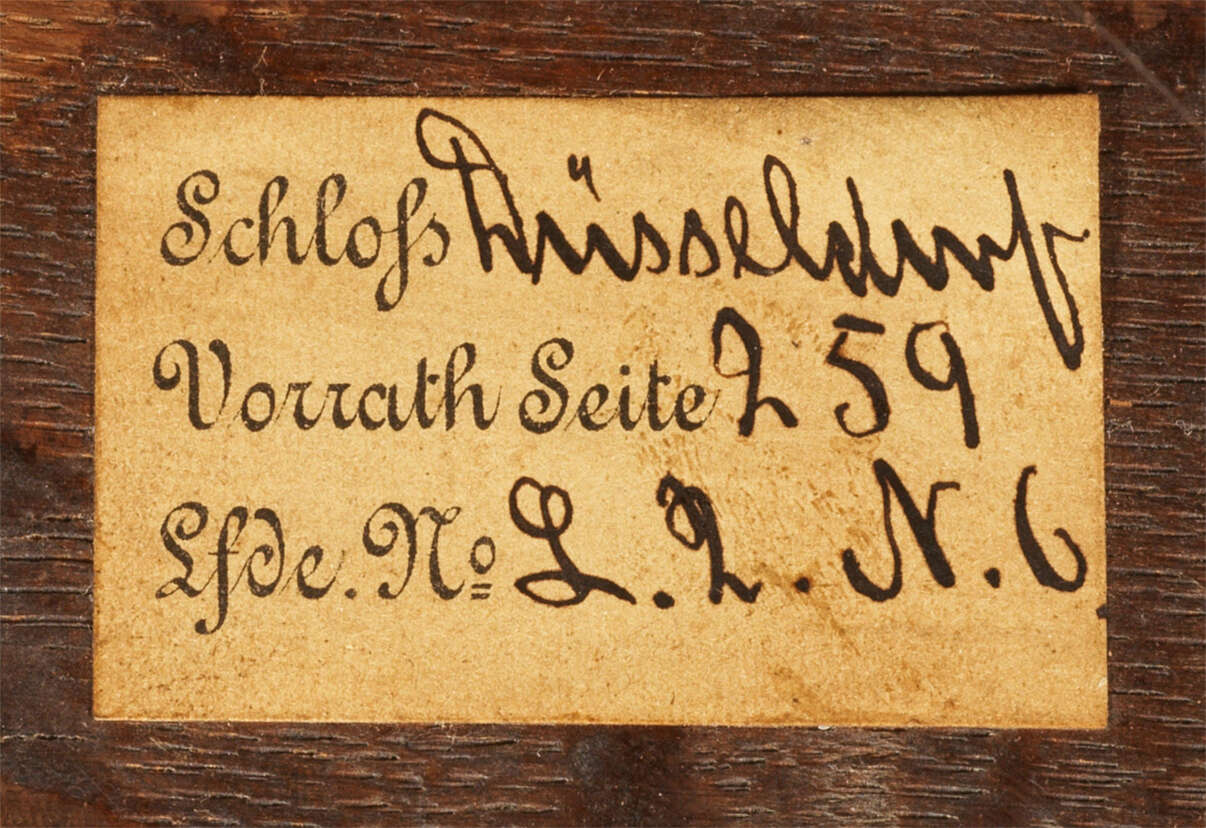 Schloſs Düsseldorf
Vorrath Seite 259
Lfde. No L. 2. N. 6.